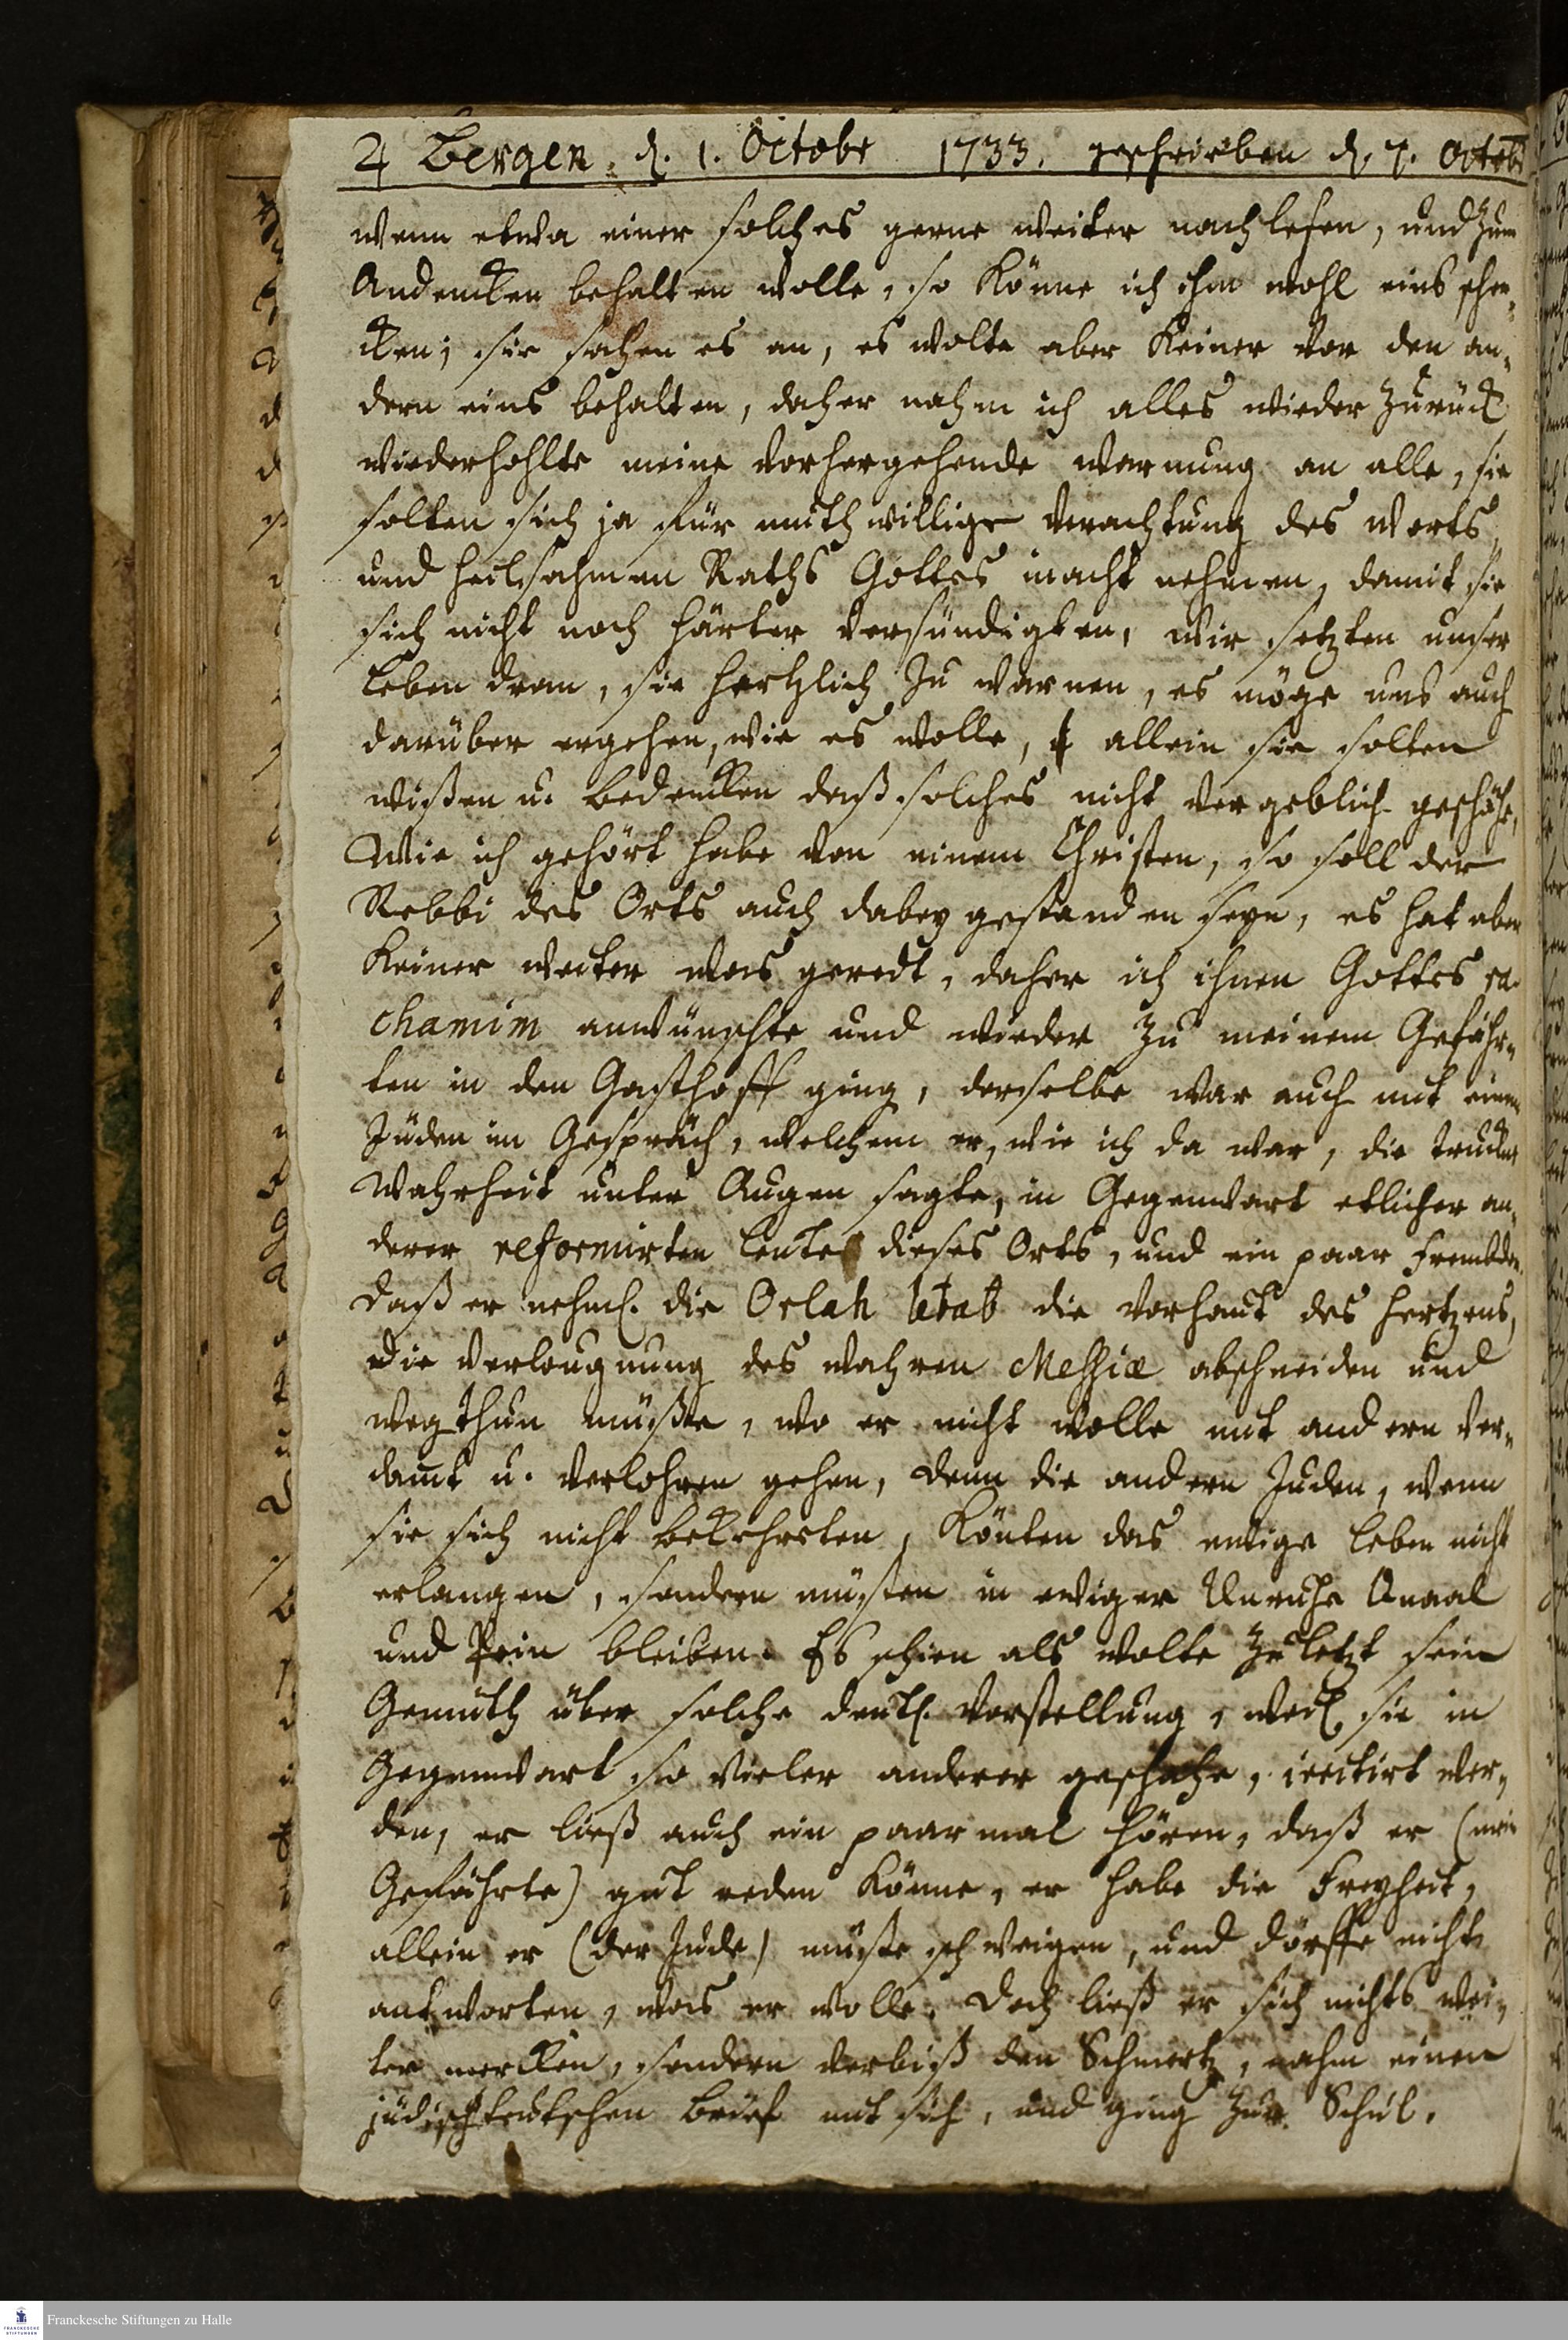 4 Bergen. d. 1. Octobr 1733. geschrieben d. 7. Octobr
wenn etwa einer solches gerne weiter nachlesen, und zum
Andencken behalten wolle, so könne ich ihm wohl eins schen-
cken; sie sahen es an, es wolte aber keiner vor den an-
dern eins behalten, daher nahm ich alles wieder zurück
wiederhohlte meine vorhergehende warnung an alle, sie
solten sich ja für muthwillige verachtung des Worts,
und heilsahmen Raths Gottes inacht nehmen, damit sie
sich nicht noch härter versündigten, wir setzten unser
Leben dran, sie hertzlich zu warnen, es möge uns auch
darüber ergehen, wie es wolle, allein sie solten
wißen u. bedencken daß solches nicht vergeblich geschähe,
Wie ich gehört habe von einem Christen, so soll der
Rebbi des Orts auch dabey gestanden seyn, es hat aber
keiner weiter was geredt, daher ich ihnen Gottes ra-
chamim anwünschte und wieder zu meinem Gefähr-
ten in den Gasthoff ging, derselbe war auch mit einem
Juden im Gespräch, welchem er, wie ich da war, die truckne
Wahrheit unter Augen sagte, in Gegenwart etlicher an-
derer reformirten Leute dieses Orts, und ein paar Frembden.
daß er nehml. die Orlah die Vorhaut des Hertzens,
die Verleugnung des wahren Messiæ abschneiden und
wegthun müßte, wo er nicht wolle mit andern ver-
damt u. verlohren gehen, denn die andern Juden, wenn
sie sich nicht bekehreten, könten das ewige Leben nicht
erlangen, sondern müsten in ewiger Unruhe Quaal
und Pein bleiben. Es schien als wolte zuletzt sein
Gemüth über solche deutl. Vorstellung, weil sie in
Gegenwart so vieler anderer geschahe, irritirt wer-
den, er ließ auch ein paar mal hören, daß er (mein
Gefährte) gut reden könne, er habe die Freyheit,
allein er (der Jude) müste schweigen, und dörffe nicht
antworten, was er wolle. Doch ließ er sich nichts wei-
ter mercken, sondern verbiß den Schmertz, nahm einen
jüdischteutschen Brief mit sich, und ging zur Schul.
Franckesche Stiftungen zu Halle